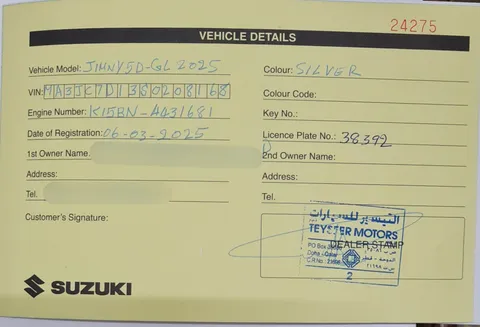 24275
VEHICLE DETAILS
Vehicle Model: JIMNY5D-GL 2025
Colour: SILVER
VIN: MA3JC7D13S0208168
Colour Code:
Engine Number: K15BN-A431681
Key No.:
Date of Registration: 06-03-2025
Licence Plate No.: 38392
1st Owner Name:
2nd Owner Name:
Address:
Address:
Tel.
Tel.
Customer's Signature:
التيسير للسيارات
TEYSEER MOTORS
DEALER STAMP
PO Box
Doha - Qatar
الدوحة - قطر
C.R No :
2
SUZUKI